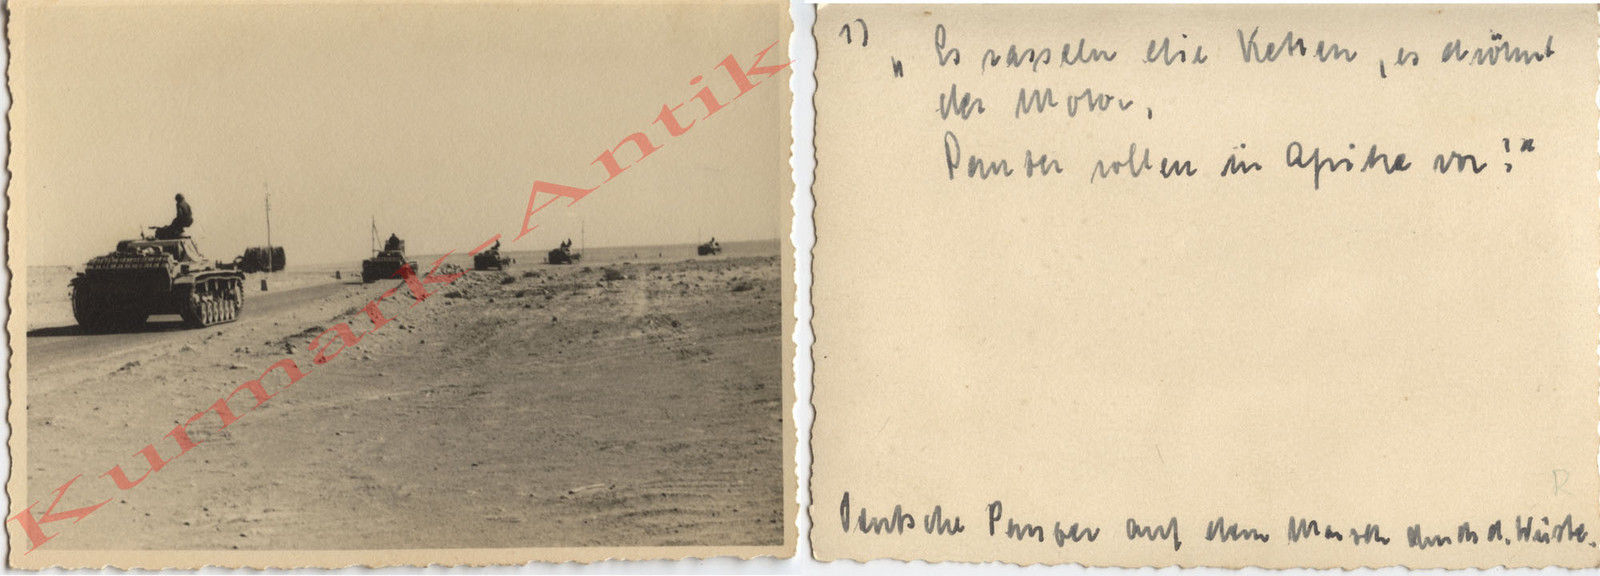 Kurmark-Antik
1)
„Es rasseln die Ketten, es dröhnt
der Motor,
Panzer rollen in Afrika vor!“
Deutsche Panzer auf dem Marsch durch d. Wüste.